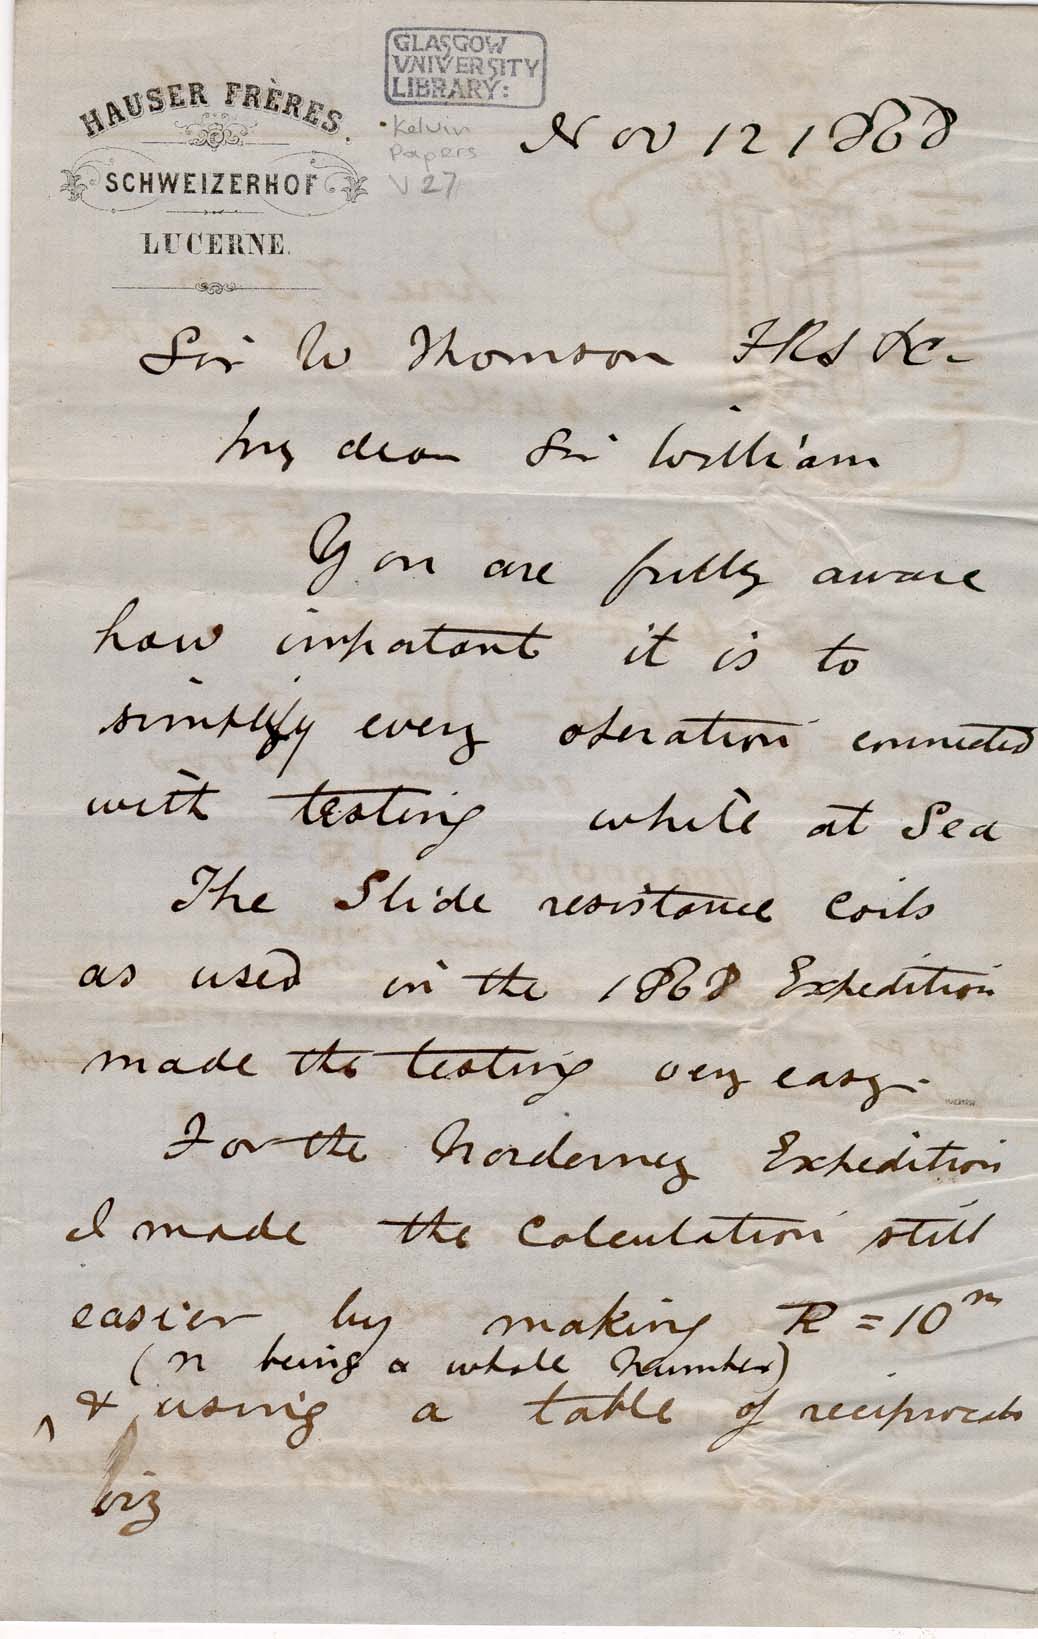 HAUSER FRÈRES.
SCHWEIZERHOF
LUCERNE.
GLASGOW
VNIVERSITY
LIBRARY:
Kelvin
Papers
V 27
Nov 12 1868
Sir W Thomson FRS &c-
My dear Sir William
You are fully aware
how important it is to
simplify every operation connected
with testing while at Sea
The Slide resistance Coils
as used in the 1868 Expedition
made the testing very easy-
For the Norderney Expedition
I made the Calculation still
easier by making R = 10ⁿ
(n being a whole Number)
& using a table of reciprocals
viz